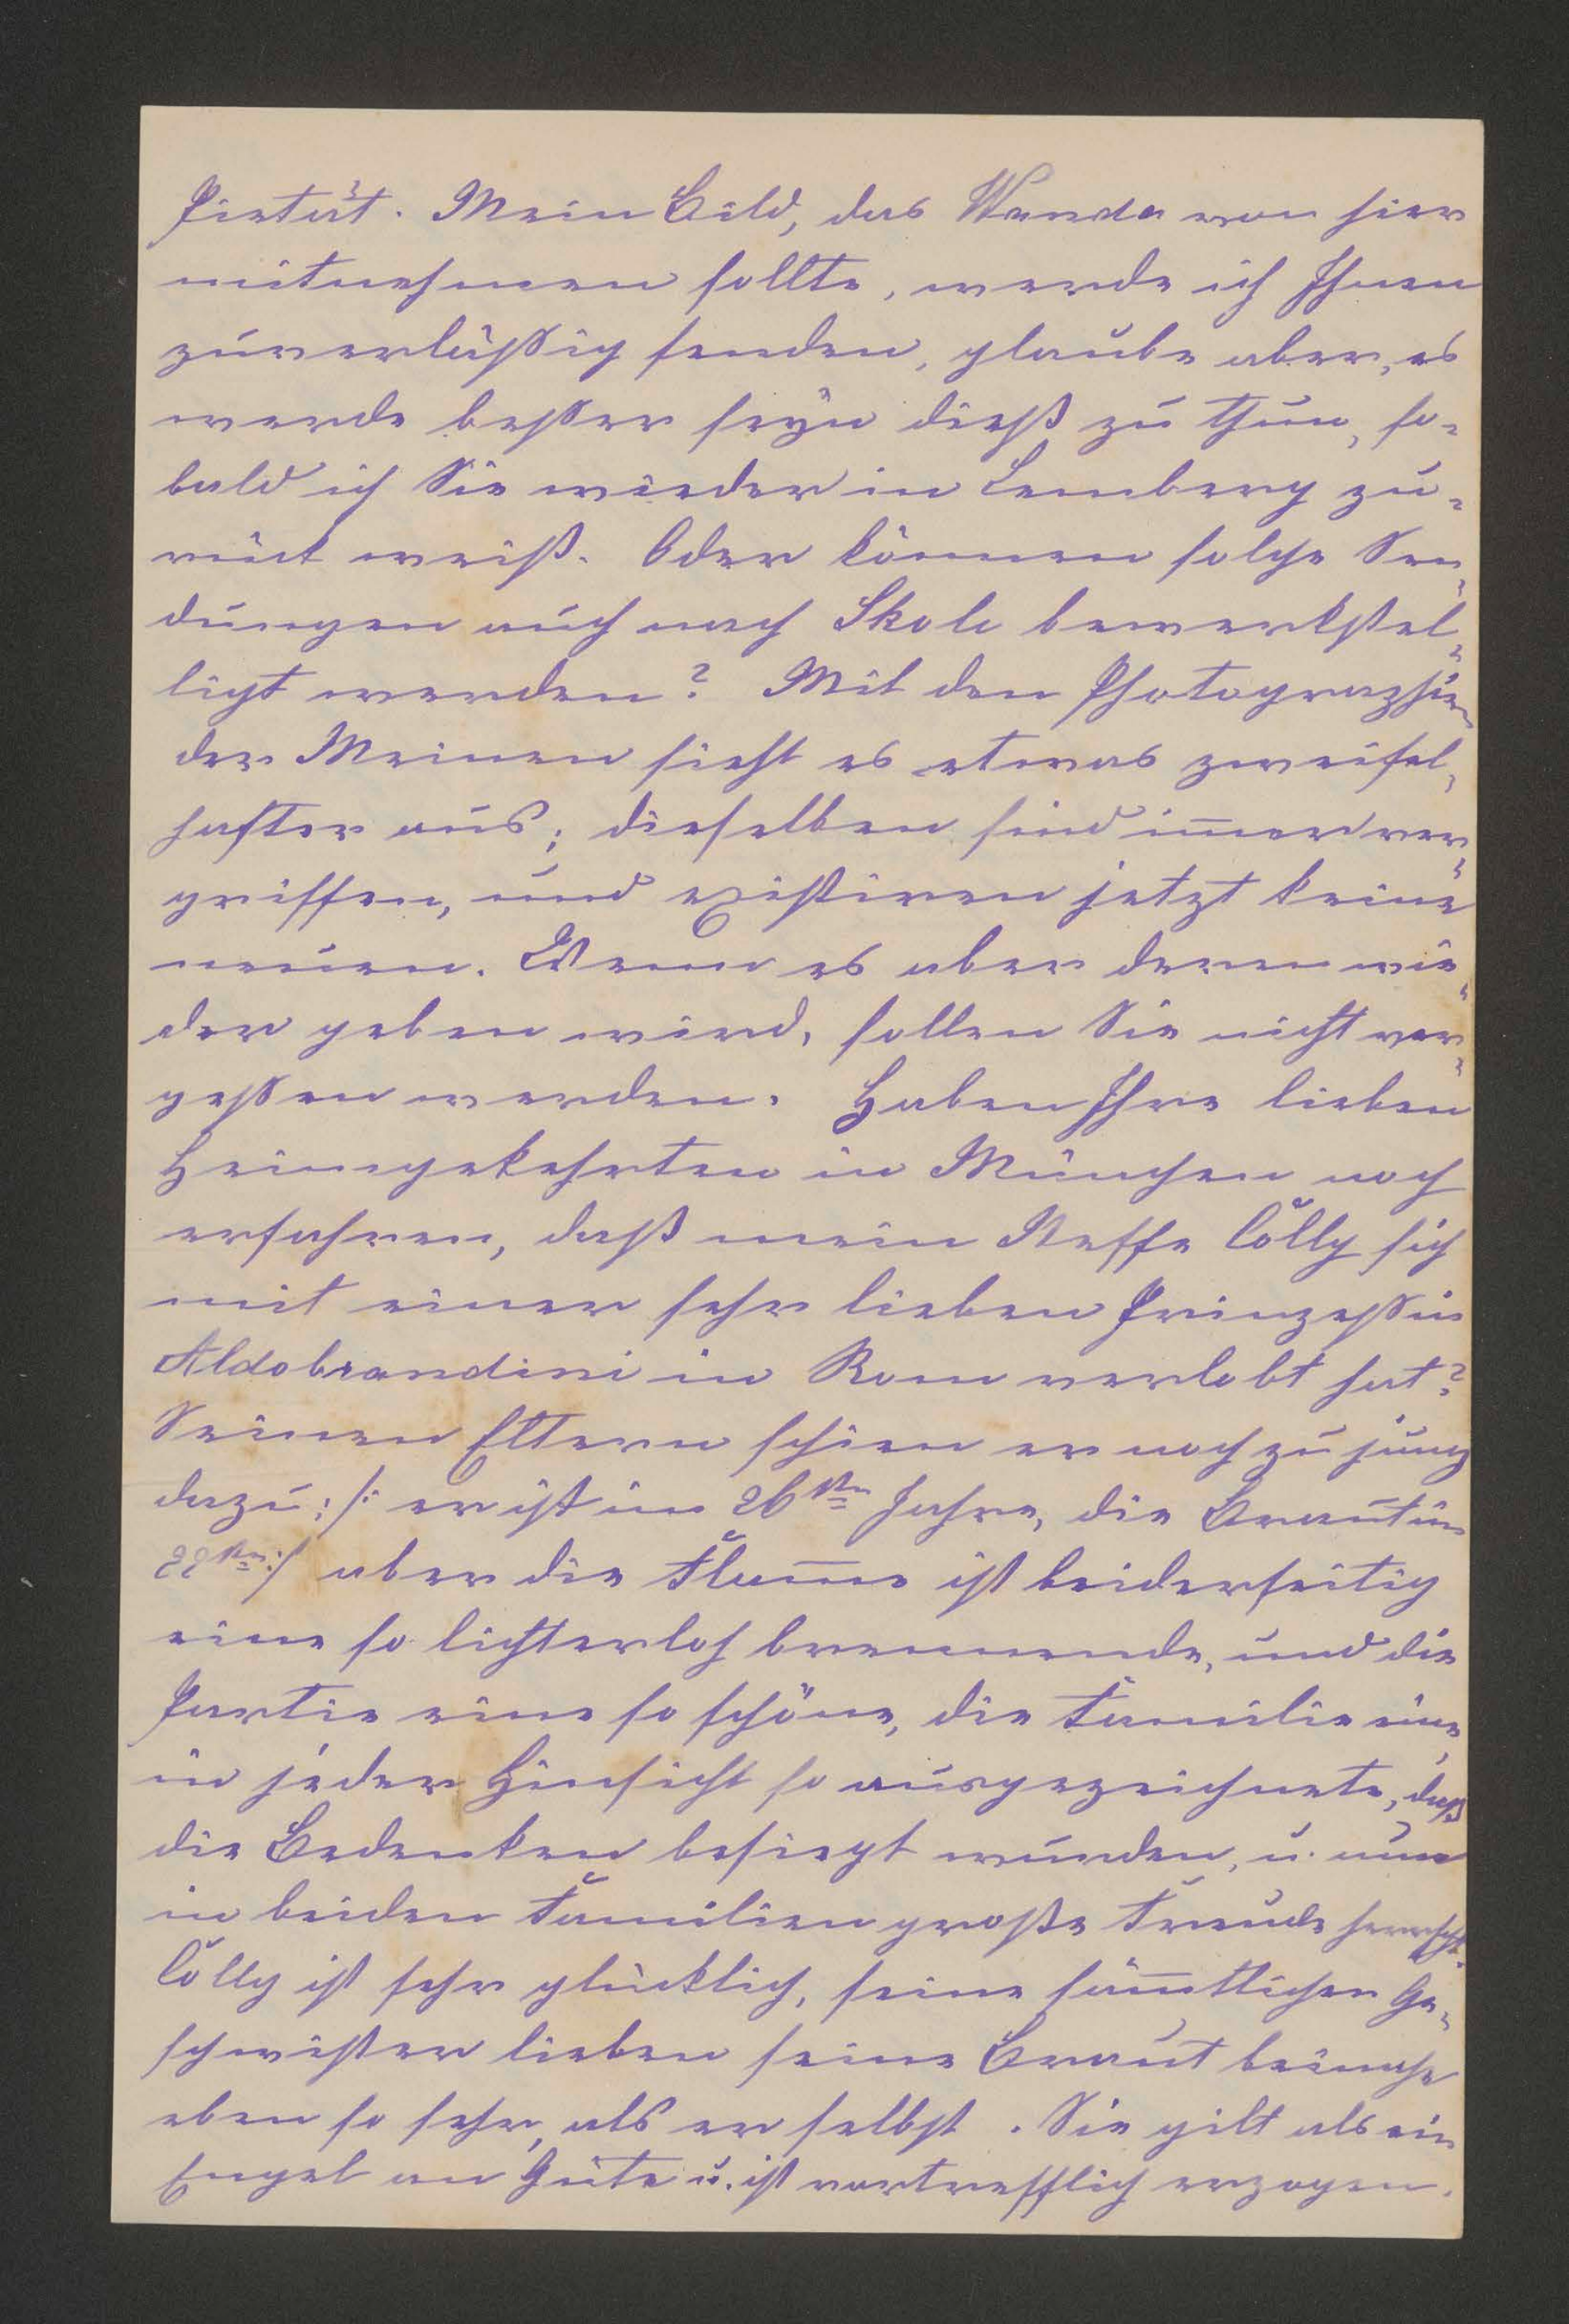 Pietät. Mein Bild, das Wanda von hier
mitnehmen sollte, werde ich Ihnen
zuverläßig senden, glaube aber, es
werde beßer seyn dieß zu thun, so-
bald ich Sie wieder in Lemberg zu-
rück weiß. Oder können solche Sen-
dungen auch nach Skole bewerkstel-
ligt werden? Mit den Photographien
der Meinen sieht es etwas zweifel-
hafter aus; dieselben sind im̅er ver-
griffen, und existiren jetzt keine
neuen. Wenn es aber deren wie-
der geben wird, sollen Sie nicht ver-
geßen werden. Haben Ihre lieben
Heimgekehrten in München noch
erfahren, daß mein Neffe Lolly sich
mit einer sehr lieben Prinzeßin
Aldobrandini in Rom verlobt hat?
Seinen Eltern schien er noch zu jung
dazu; /: er ist im 26ten Jahre, die Braut im
22ten :/ aber die Flam̅e ist beiderseitig
eine so lichterloh brennende, und die
Partie eine so schöne, die Familie eine
in jeder Hinsicht so ausgezeichnete, daß
die Bedenken besiegt wurden, u. nun
in beiden Familien große Freude herrscht.
Lolly ist sehr glücklich, seine säm̅tlichen Ge-
schwister lieben seine Braut beinahe
eben so sehr, als er selbst. Sie gilt als ein
Engel an Güte u. ist vortrefflich erzogen.